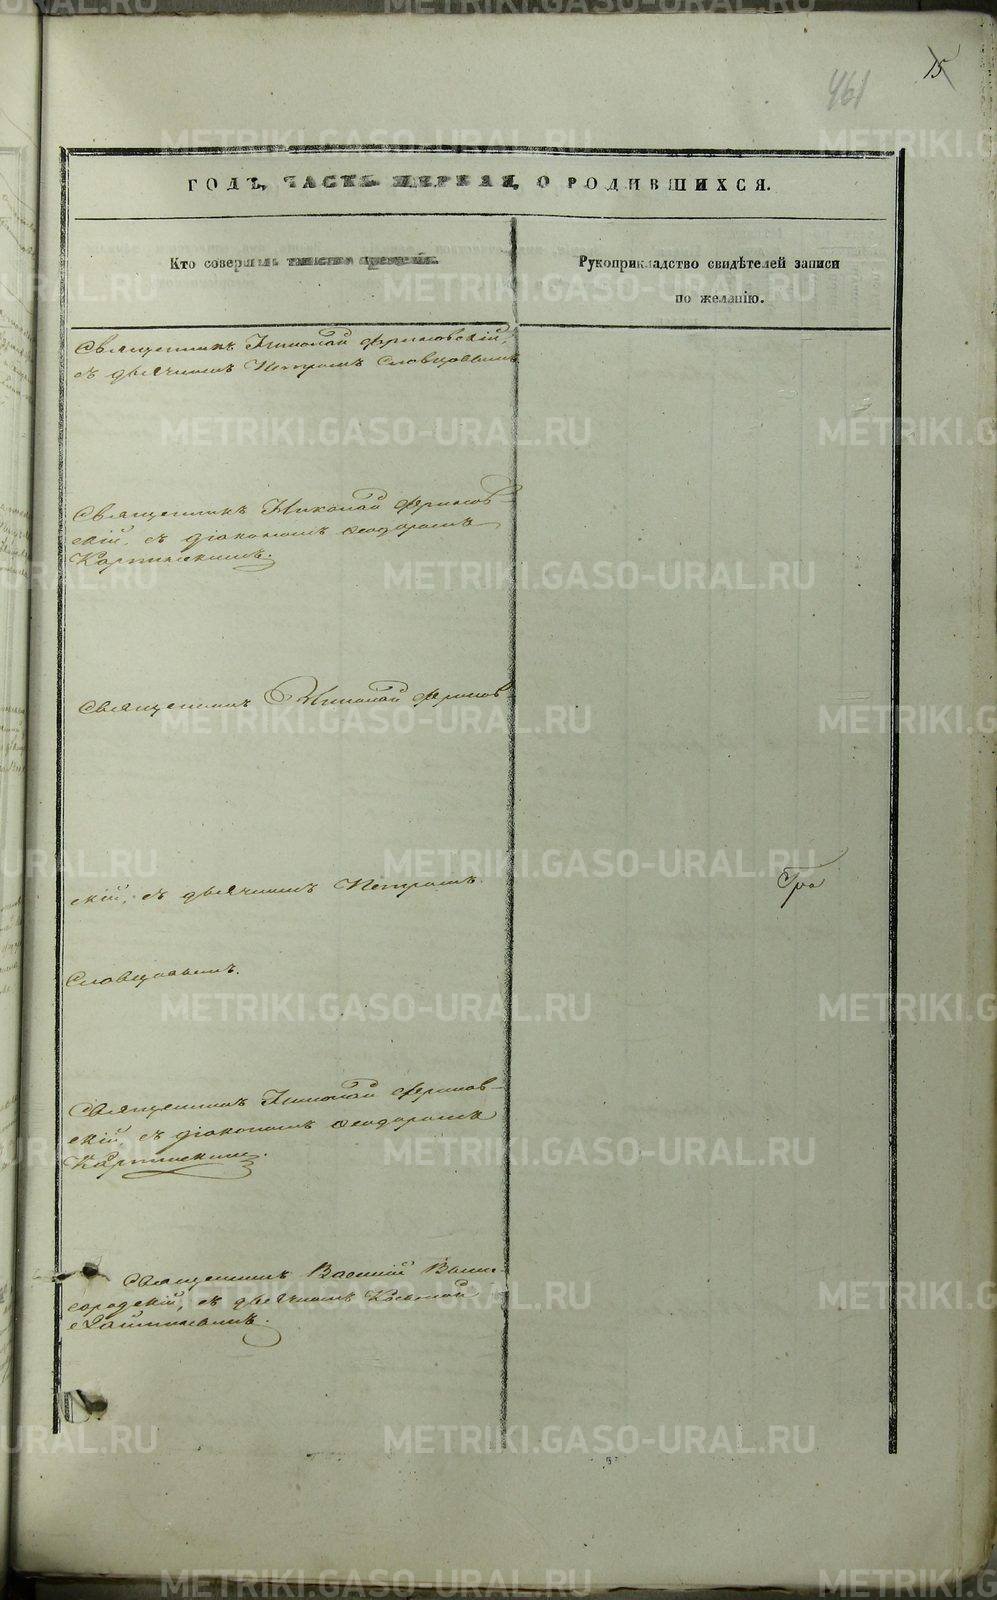 15
461
ГОДЪ, ЧАСТЬ ПЕРВАЯ, О РОДИВШИХСЯ.
Кто совершалъ таинство крещенія.
Рукоприкладство свидѣтелей записи
по желанію.
Священникъ Николай
съ дьячкомъ Петромъ Словцовымъ
Священникъ Николай
скій, съ діакономъ Ѳеодоромъ
Карпинскимъ.
Священникъ Николай
скій, съ дьячкомъ Петромъ
Словцовымъ.
Священникъ Николай
скій, съ діакономъ Ѳеодоромъ
Карпинскимъ.
Священникъ Василій Выше-
городскій, съ дьячкомъ Космой
METRIKI.GASO-URAL.RU